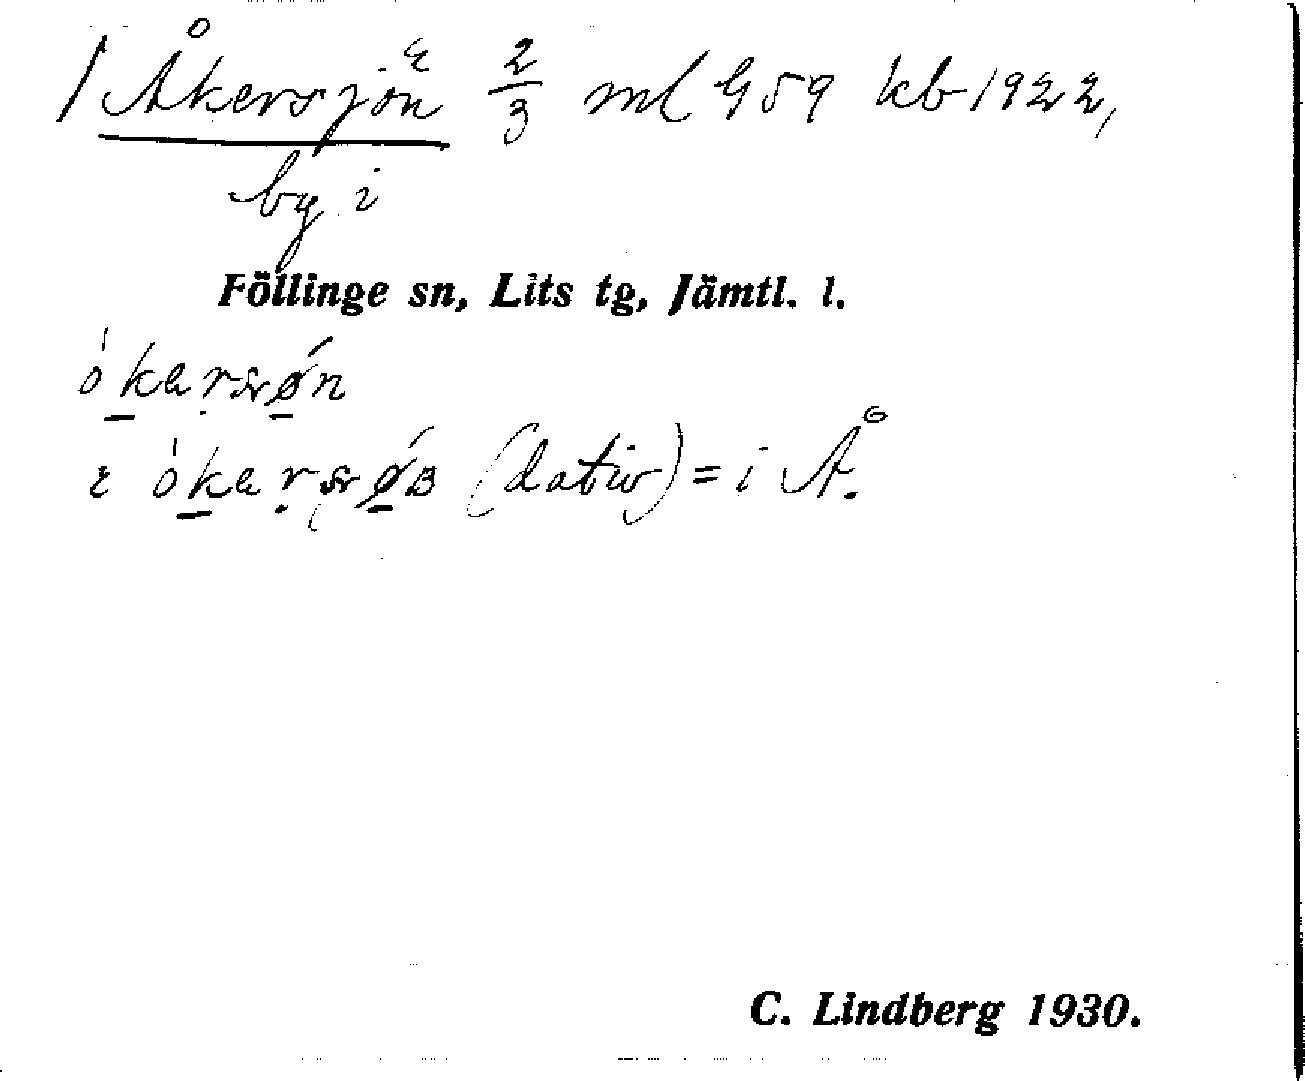 1 Åkersjön 2/3 ml G59 kb 1922,
by i
Föllinge sn, Lits tg, Jämtl. l.
(dativ) = i Å.
C. Lindberg 1930.